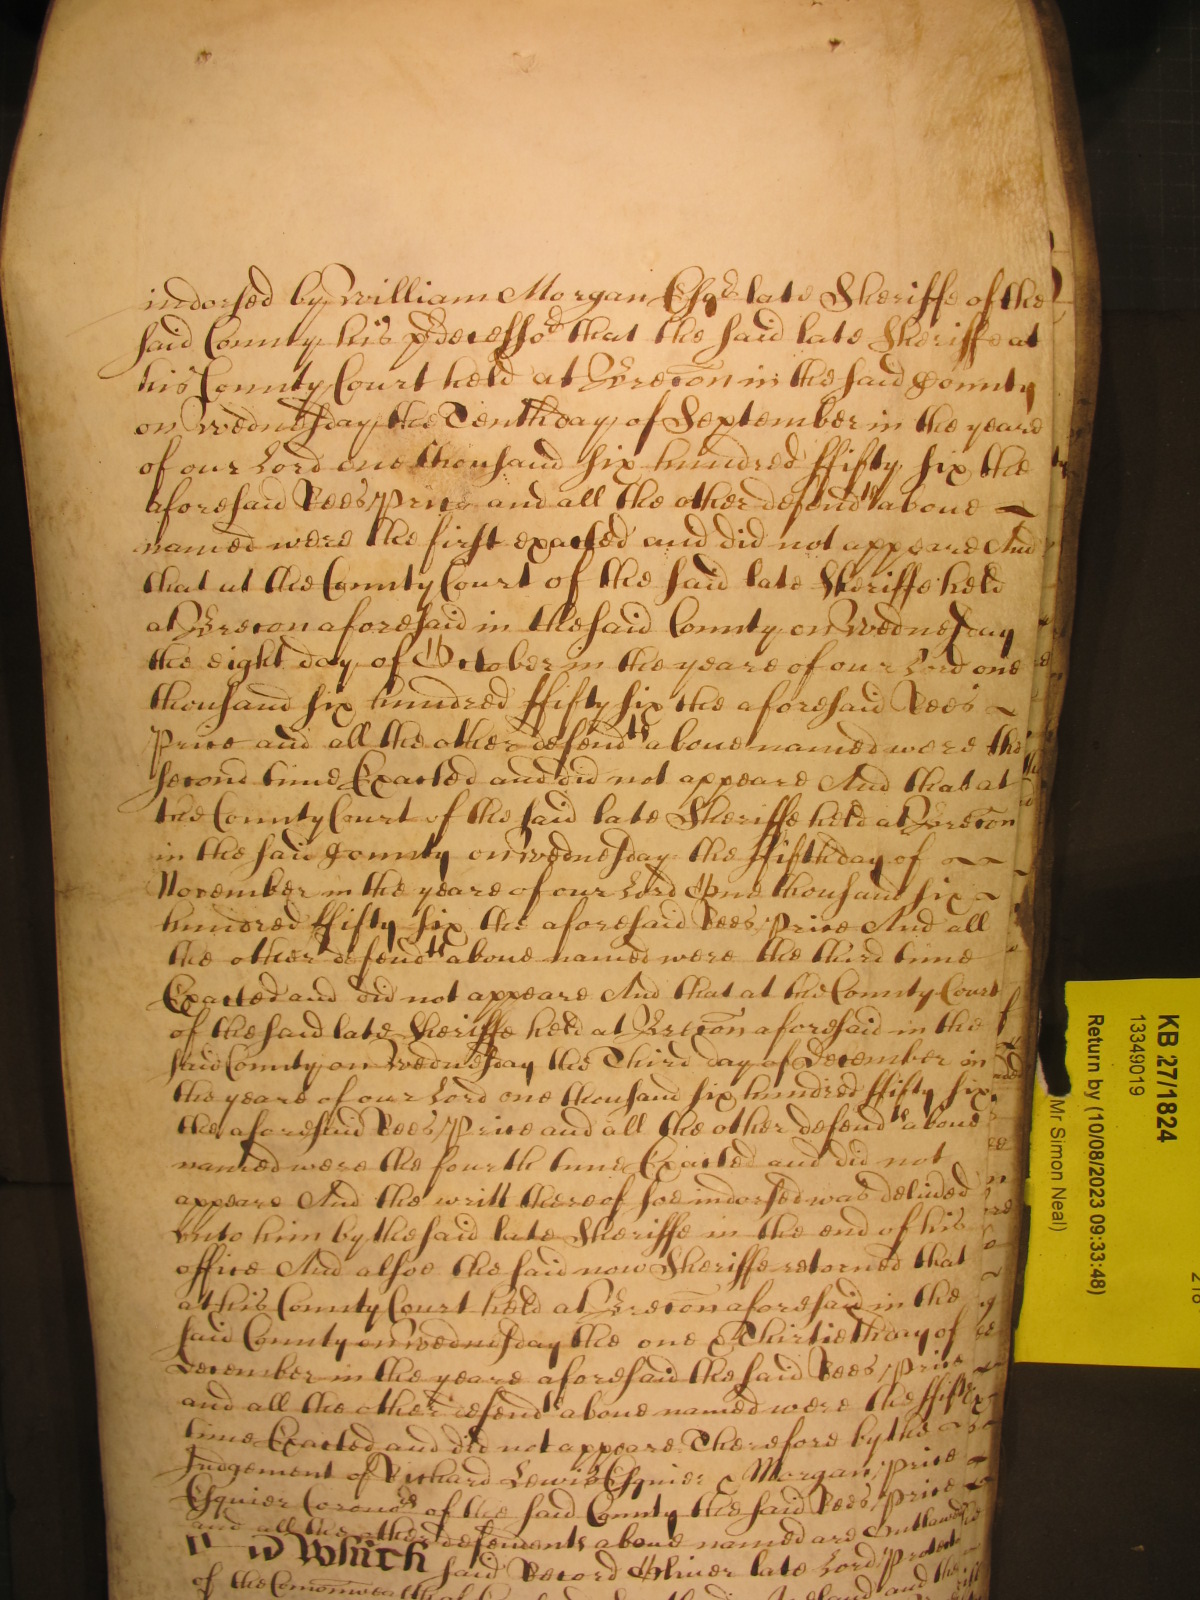 indorsed by William Morgan Esqr late Sheriffe of the
said County his pdecessor that the said late Sheriffe at
his County Court held at Brecon in the said County
on Wednesday the Tenth day of September in the yeare
of our Lord one thousand six hundred ffifty six the
aforesaid Rees Price and all the other defendts aboue
named were the first exacted and did not appeare And
that at the County Court of the said late Sheriffe held
at Brecon aforesaid in the said County on Wednesday
the eight day of October in the yeare of our Lord one
thousand six hundred ffifty six the aforesaid Rees
Price and all the other defendts aboue named were the
second time Exacted and did not appeare And that at
the County Court of the said late Sheriffe held at Brecon
in the said County on Wednesday the ffifth day of
November in the yeare of our Lord One thousand six
hundred ffifty six the aforesaid Rees Price And all
the other defendts aboue named were the third time
Exacted and did not appeare And that at the County Court
of the said late Sheriffe held at Brecon aforesaid in the
said County on Wednesday the Third day of December in
the yeare of our Lord one thousand six hundred ffifty six
the aforesaid Rees Price and all the other defendts aboue
named were the fourth time Exacted and did not
appeare And the writt thereof soe indorsed was deliued
vnto him by the said late Sheriffe in the end of his
office And alsoe the said now Sheriffe retorned that
at his County Court held at Brecon aforesaid in the
said County on Wednesday the one & Thirtieth day of
December in the yeare aforesaid the said Rees Price
and all the other defendts aboue named were the ffifth
time Exacted and did not appeare Therefore by the
Judgement of Richard Lewis Esquier & Morgan Price
Esquier Coronors of the said County the said Rees Price
and all the other defendents aboue named are Outlawed
Which said Record Oliver late Lord Protector
of the Comonwealth of
KB 27/1824
13349019
Return by (10/08/2023 09:33:48)
Mr Simon Neal)